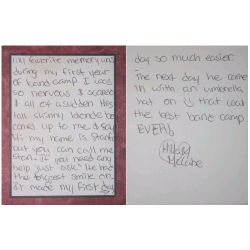 My favorite memory was
during my first year
of band camp. I was
so nervous & scared
& all of a sudden this
tall skinny blonde be
comes up to me & say
Hi my name is Stanford
but you can call me
Stan. If you need any
help just ask." He had
the biggest smile on,
it made my first day
day so much easier.
The next day he came
in with an umbrella
hat on & that was
the best band camp
EVER!
Hillary
McCabe